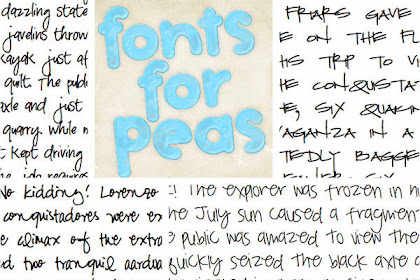 dazzling state
javelins throw
kayak just af
quilt. The publi
axle and just
quarry. While n
t kept driving
fonts
for
peas
FRIARS GAVE
E ON THE FL
HIS TRIP TO VI
HE CONQUISTA
E, SIX QUAK
'AGANZA IN A
TEDLY BAGGE
No kidding! Lorenzo
conquistadores were ex
e climax of the extra
d two tranquil aardva
! The explorer was frozen in h
he July sun caused a fragment
3 public was amazed to view the
quickly seized the black axle a